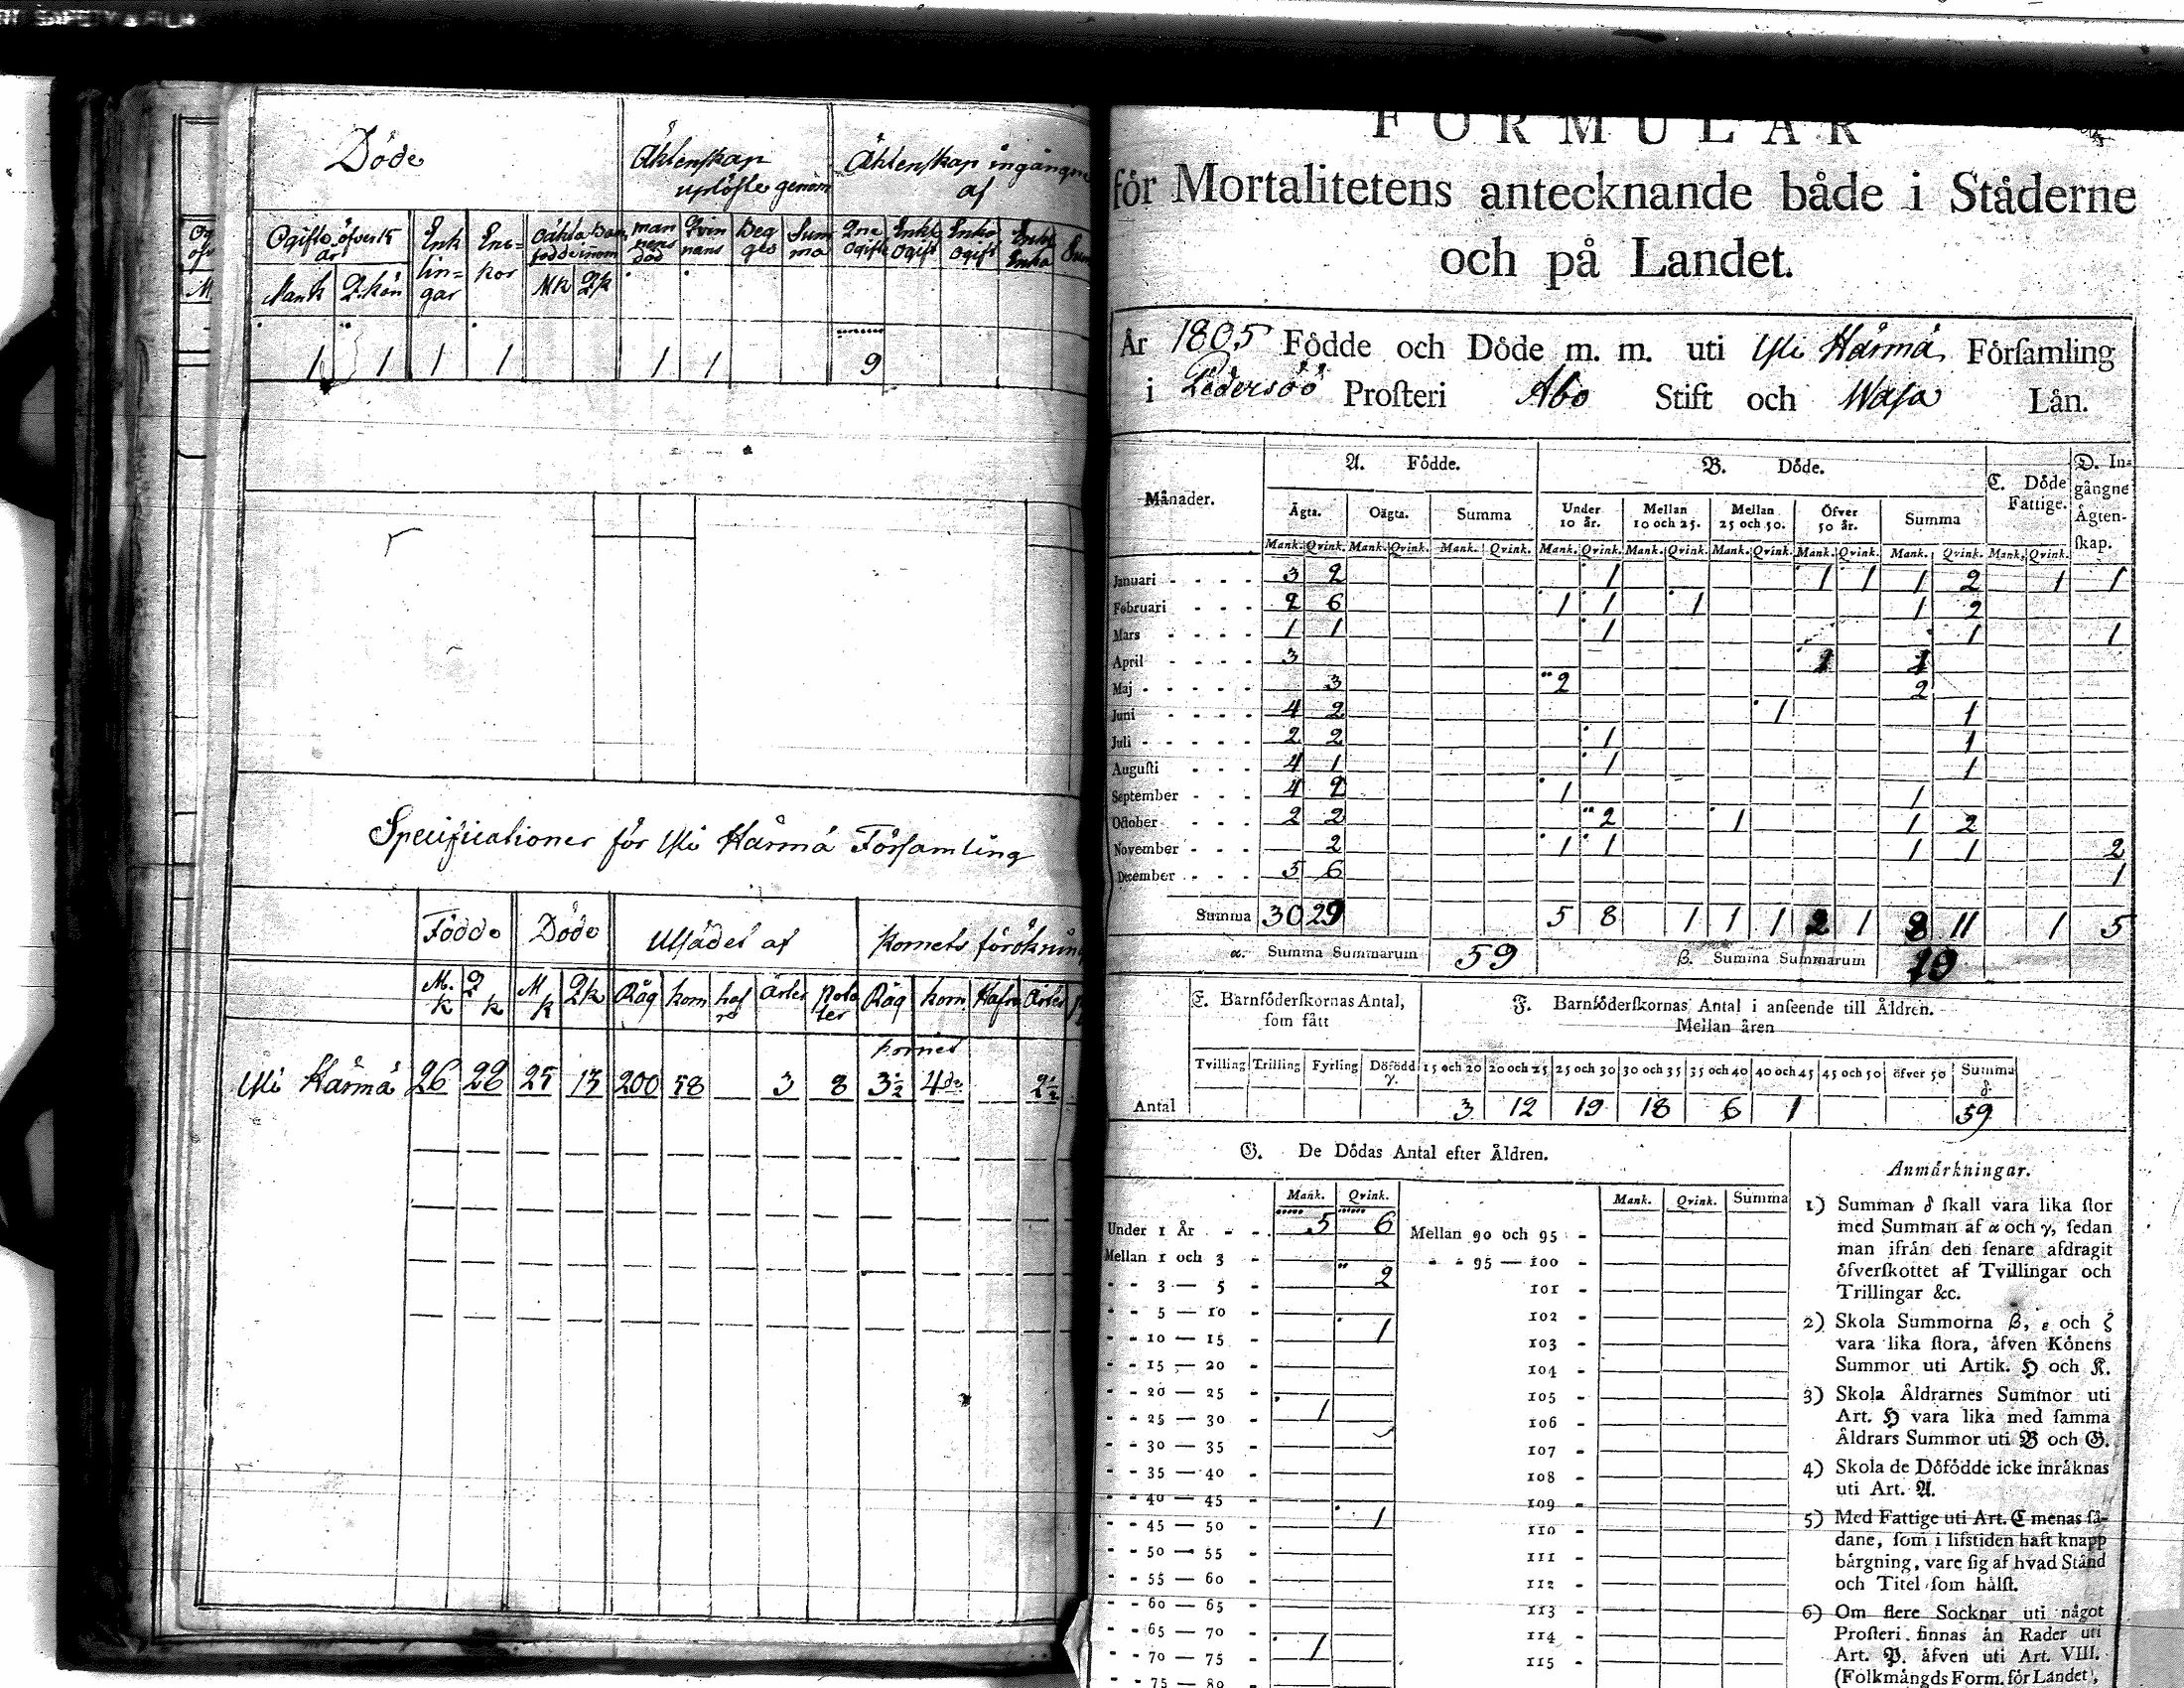 SAFETY FILM
Döde
Ächtenskap
uplöste genom
Ächtenskap ingångne
af
Ogifte öfver 15
år
Enk
lin=
gar
Enc=
kor
Oächta Barn
födde inom
man
nens
död
Qvin
nans
Sum
ma
Ogifte
Enkl
Ogift
Enko
Ogift
Enkl
Enka
Mank
Q.kön
Mk
Qk
1 1 1 1 1 1 9
Specificationer för Yli Härmä Församling
Födde
Döde
Utsädet af
Kornets förökning
M.
k
Q
k
M
k
Qk
Råg
korn
haf
re
Ärter
Pota
ter
Råg
korn
Hafre
Ärter
kornet
Yli Härmä 26 22 25 13 200 58 3 8 3½ 4de 2½
FORMULAR
för Mortalitetens antecknande både i Städerne
och på Landet.
År 1805 Födde och Döde m. m. uti Yli Härmä Församling
i Pedersöö Prosteri Åbo Stift och Wasa Län.
Månader.
A. Födde.
B. Döde.
C. Döde
Fattige.
D. In-
gångne
Ägten-
skap.
Ägta.
Oägta.
Summa
Under
10 år.
Mellan
10 och 25.
Mellan
25 och 50.
Öfver
50 år.
Summa
Mank. Qvink. Mank. Qvink. Mank. Qvink. Mank. Qvink. Mank. Qvink. Mank. Qvink. Mank. Qvink. Mank. Qvink. Mank. Qvink.
Januari - - - - 3 2 1 1 1 1 2 1 1
Februari - - - 2 6 1 1 1 1 2
Mars - - - - 1 1 1 1 1
April - - - - 3 1 1
Maj - - - - - 3 2 2
Juni - - - - 4 2 1 1
Juli - - - - - 2 2 1 1
Augusti - - - 4 1 1 1
September - - - 4 2 1 1
October - - - 2 2 2 1 1 2
November - - - 2 1 1 1 1 2
December - - - 5 6 1
Summa 30 29 5 8 1 1 1 2 1 8 11 1 5
α. Summa Summarum 59 β. Summa Summarum 19
E. Barnföderskornas Antal,
som fått
F. Barnföderskornas Antal i anseende till Åldren.
Mellan åren
Tvilling Trilling Fyrling Döfödd γ. 15 och 20 20 och 25 25 och 30 30 och 35 35 och 40 40 och 45 45 och 50 öfver 50 Summa δ.
Antal 3 12 19 18 6 1 59
G. De Dödas Antal efter Åldren.
Mank. Qvink. Mank. Qvink. Summa
Under 1 År - - 5 6 Mellan 90 och 95 -
Mellan 1 och 3 - - - 95 — 100 -
- - 3 — 5 - 2 101 -
- - 5 — 10 - 102 -
- - 10 — 15 - 1 103 -
- - 15 — 20 - 104 -
- - 20 — 25 - 105 -
- - 25 — 30 - 1 106 -
- - 30 — 35 - 107 -
- - 35 — 40 - 108 -
- - 40 — 45 - 109 -
- - 45 — 50 - 1 110 -
- - 50 — 55 - 111 -
- - 55 — 60 - 112 -
- - 60 — 65 - 113 -
- - 65 — 70 - 114 -
- - 70 — 75 - 1 115 -
- - 75 — 80 -
Anmärkningar.
1) Summan δ skall vara lika stor
med Summan af α och γ, sedan
man ifrån den senare afdragit
öfverskottet af Tvillingar och
Trillingar &c.
2) Skola Summorna β, ε och ζ
vara lika stora, äfven Könens
Summor uti Artik. H och K.
3) Skola Åldrarnes Summor uti
Art. H vara lika med samma
Åldrars Summor uti B och G.
4) Skola de Döfödde icke inräknas
uti Art. A.
5) Med Fattige uti Art. C menas så-
dane, som i lifstiden haft knapp
bärgning, vare sig af hvad Stånd
och Titel som hälst.
6) Om flere Socknar uti något
Prosteri finnas än Rader uti
Art. P. äfven uti Art. VIII.
(Folkmängds Form. för Landet),